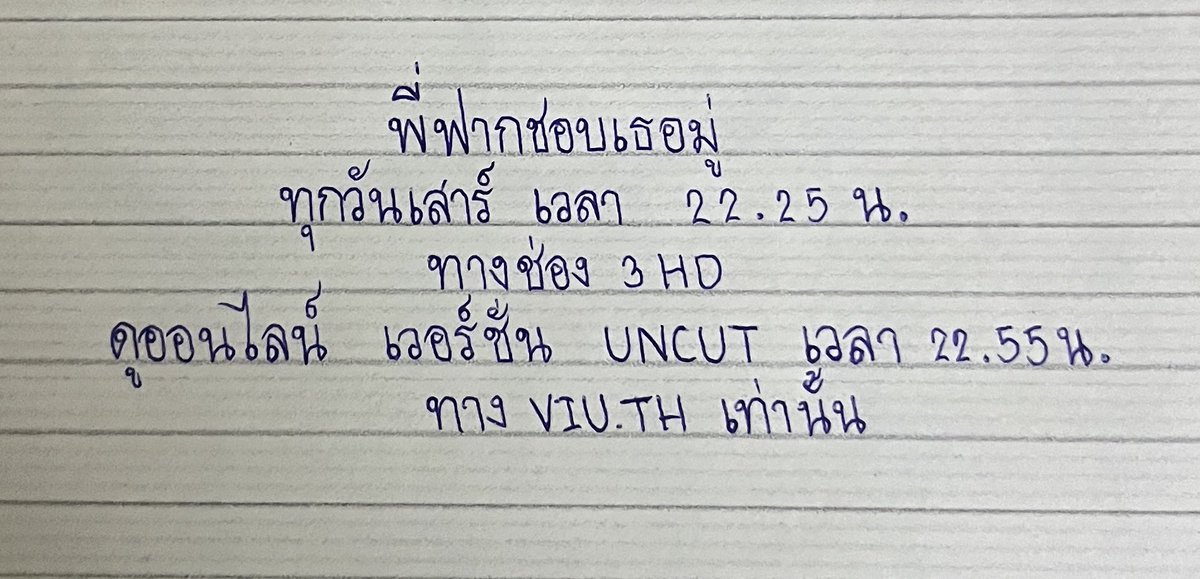 พี่ฟากชอบเธอมู่
ทุกวันเสาร์ เวลา 22.25 น.
ทางช่อง 3 HD
ดูออนไลน์ เวอร์ชัน UNCUT เวลา 22.55 น.
ทาง VIU.TH เท่านั้น